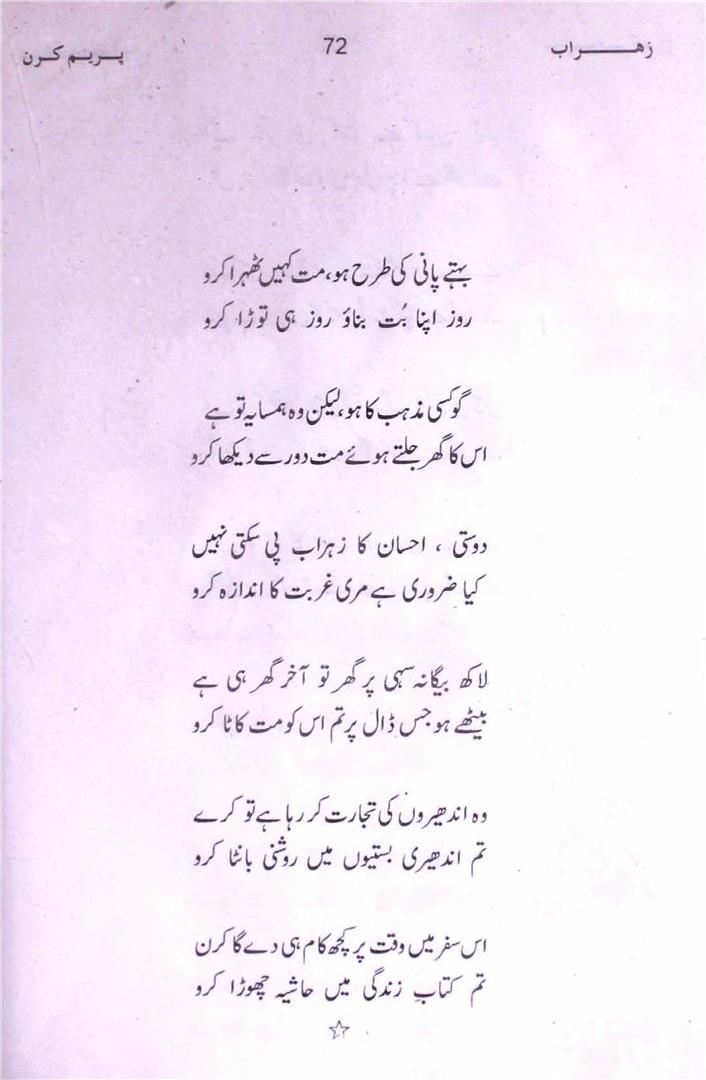 زهراب
72
پریم کرن
بہتے پانی کی طرح ہو، مت کہیں ٹھہرا کرو
روز اپنا بُت بناؤ روز ہی توڑا کرو
گو کسی مذہب کا ہو، لیکن وہ ہمسایہ تو ہے
اس کا گھر جلتے ہوئے مت دور سے دیکھا کرو
دوستی ، احسان کا زہراب پی سکتی نہیں
کیا ضروری ہے مری غربت کا اندازہ کرو
لاکھ بیگانہ سہی پر گھر تو آخر گھر ہی ہے
بیٹھے ہو جس ڈال پر تم اس کو مت کاٹا کرو
وہ اندھیروں کی تجارت کر رہا ہے تو کرے
تم اندھیری بستیوں میں روشنی بانٹا کرو
اس سفر میں وقت پر کچھ کام ہی دے گا کرن
تم کتابِ زندگی میں حاشیہ چھوڑا کرو
☆